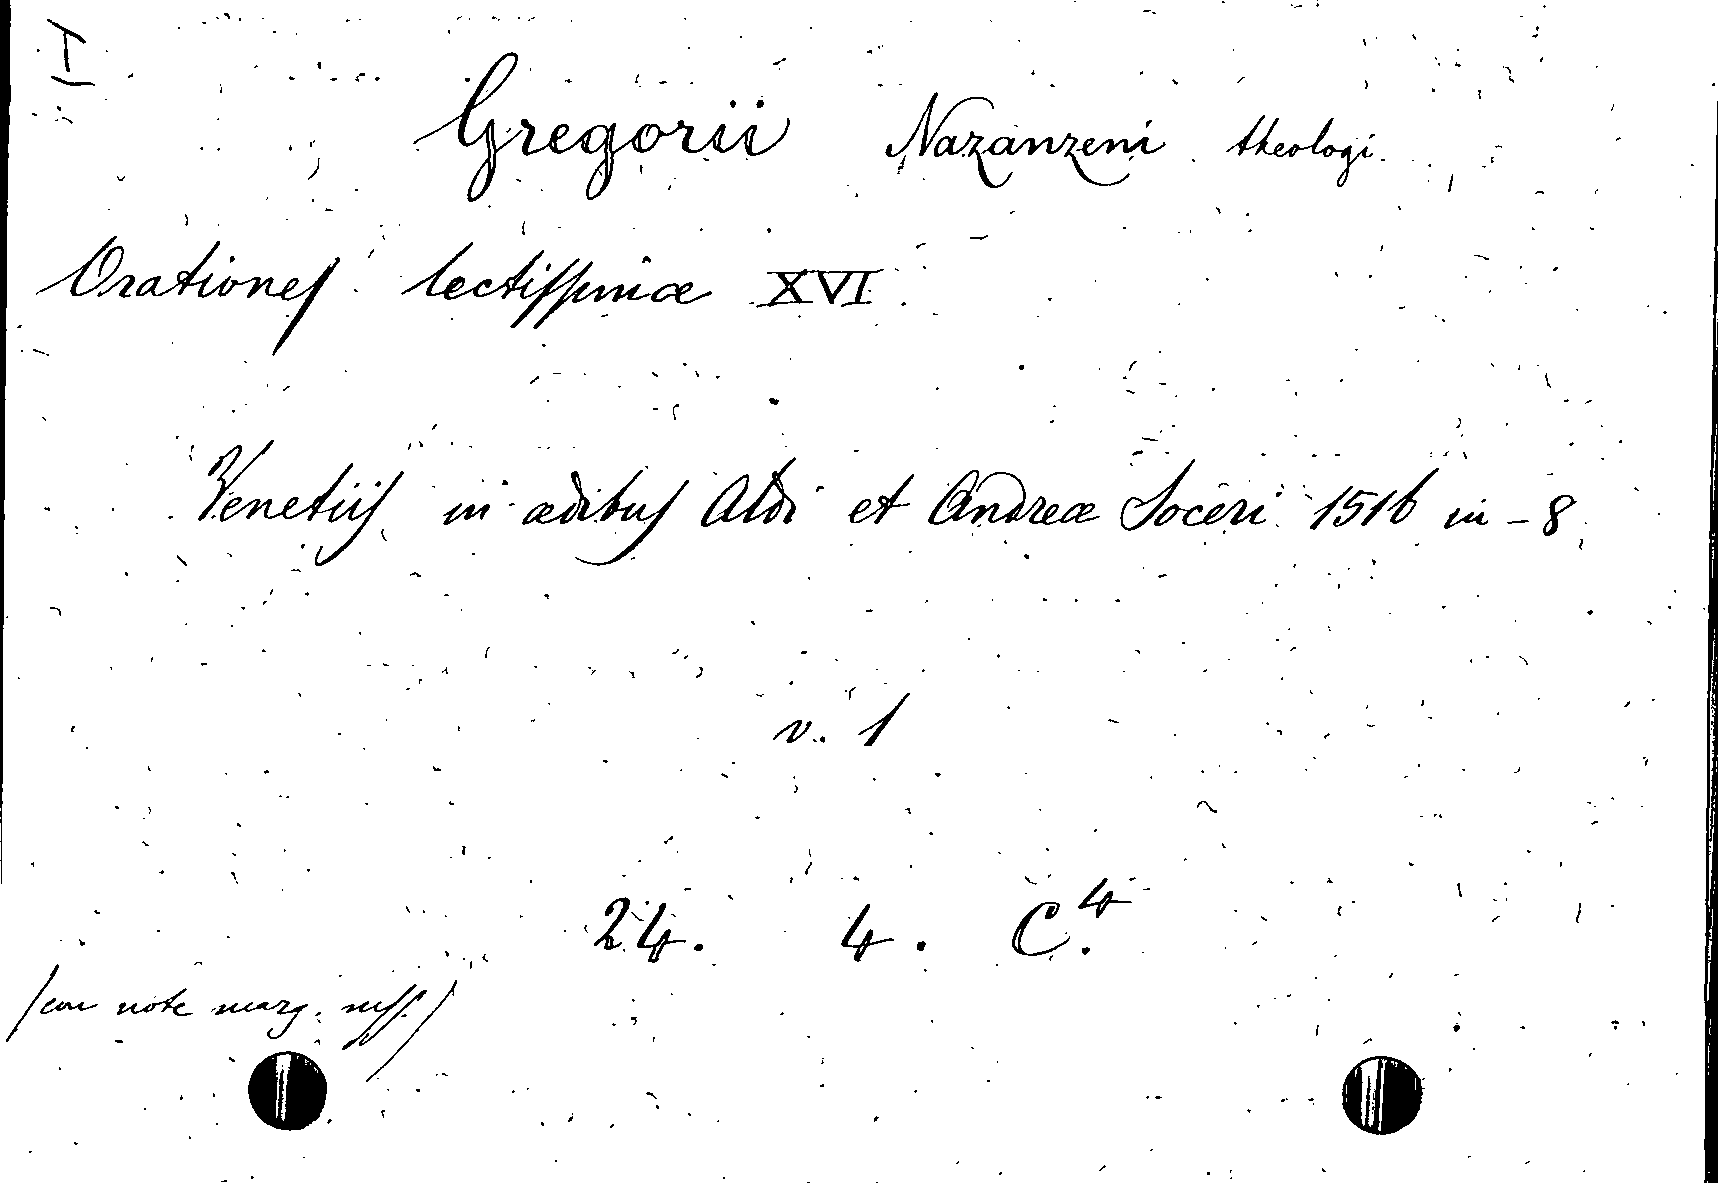 I
Gregorii Nazanzeni theologi
Orationes lectissimæ XVI
Venetiis in ædibus Aldi et Andreæ Soceri 1516 in-8
v. 1
24. 4. C.4
(con note marg. mss.)